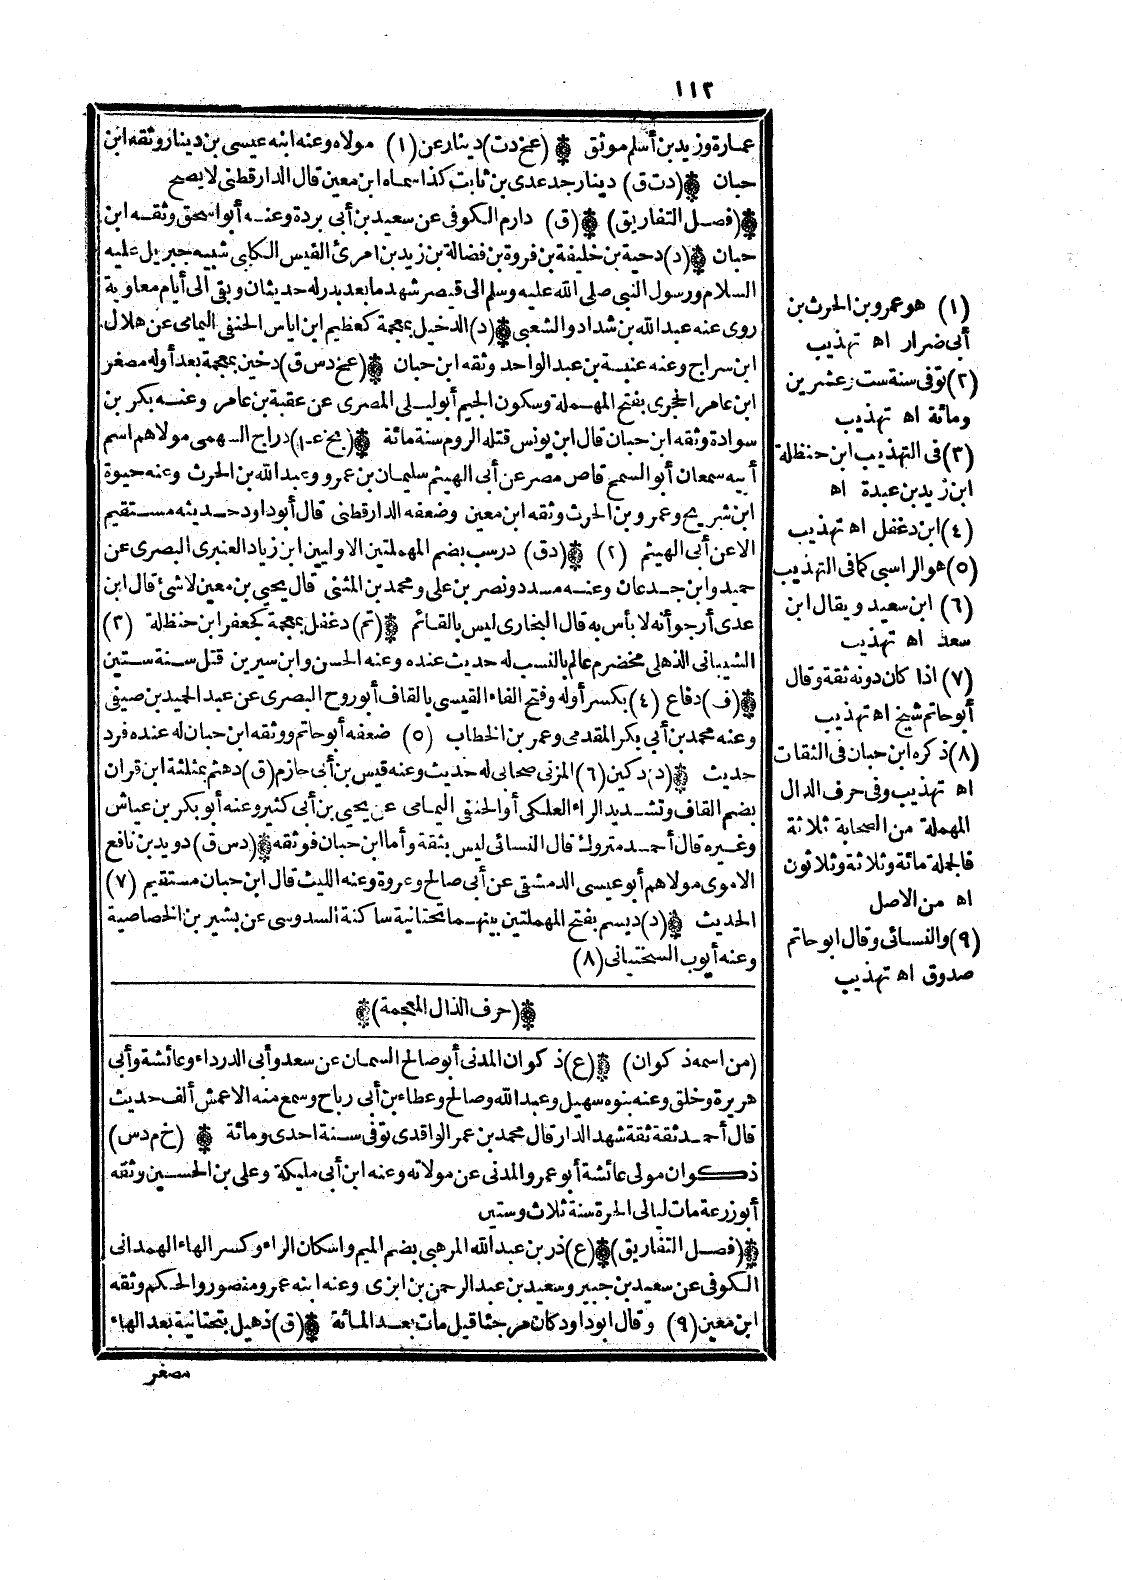 ١١٢
عمارة وزيد بن أسلم موثق (عخ دت) دينار عن (١) مولاه وعنه ابنه عيسى بن دينار وثقه ابن
حبان (دت ق) دينار جد عدى بن ثابت كذا سماه ابن معين قال الدارقطنى لا يصح
(فصل التفاريق) (ق) دارم الكوفى عن سعيد بن أبى بردة وعنه أبو اسحق وثقه ابن
حبان (د) دحية بن خليفة بن فروة بن فضالة بن زيد بن امرئ القيس الكلبى شبيه جبريل عليه
السلام ورسول النبى صلى الله عليه وسلم الى قيصر شهد ما بعد بدر له حديثان وبقى الى أيام معاوية
روى عنه عبد الله بن شداد والشعبى (د) الدخيل بمعجمة كعظيم ابن اياس الحنفى اليمامى عن هلال
ابن سراج وعنه عنبسة بن عبد الواحد وثقه ابن حبان (عخ دس ق) دخين بمعجمة بعد أوله مصغر
ابن عامر الحجرى بفتح المهملة وسكون الجيم أبو ليلى المصرى عن عقبة بن عامر وعنه بكر بن
سوادة وثقه ابن حبان قال ابن يونس قتله الروم سنة مائة (بخ عـ ا) دراج السهمى مولاهم اسم
أبيه سمعان أبو السمح قاص مصر عن أبى الهيثم سليمان بن عمرو وعبد الله بن الحرث وعنه حيوة
ابن شريح وعمرو بن الحرث وثقه ابن معين وضعفه الدارقطنى قال أبو داود حديثه مستقيم
الا عن أبى الهيثم (٢) (دق) درست بضم المهملتين الاوليين ابن زياد العنبرى البصرى عن
حميد وابن جدعان وعنه مسدد ونصر بن على ومحمد بن المثنى قال يحيى بن معين لا شئ قال ابن
عدى أرجو أنه لا بأس به قال البخارى ليس بالقائم (تم) دغفل بمعجمة كجعفر ابن حنظلة (٣)
الشيبانى الذهلى مخضرم عالم بالنسب له حديث عنده وعنه الحسن وابن سيرين قتل سنة ستين
(ف) دفاع (٤) بكسر أوله وفتح الفاء القيسى بالقاف أبو روح البصرى عن عبد الحميد بن صيفى
وعنه محمد بن أبى بكر المقدمى وعمر بن الخطاب (٥) ضعفه أبو حاتم ووثقه ابن حبان له عنده فرد
حديث (د) دكين (٦) المزنى صحابى له حديث وعنه قيس بن أبى حازم (ق) دهثم بمثلثة ابن قران
بضم القاف وتشديد الراء العلكى أو الحنفى اليمامى عن يحيى بن أبى كثير وعنه أبو بكر بن عياش
وغيره قال أحمد متروك قال النسائى ليس بثقة وأما ابن حبان فوثقه (دس ق) دويد بن نافع
الاموى مولاهم أبو عيسى الدمشقى عن أبى صالح وعروة وعنه الليث قال ابن حبان مستقيم (٧)
الحديث (د) ديسم بفتح المهملتين بينهما تحتانية ساكنة السدوسى عن بشير بن الخصاصية
وعنه أيوب السختيانى (٨)
(حرف الذال المعجمة)
(من اسمه ذكوان) (ع) ذكوان المدنى أبو صالح السمان عن سعد وأبى الدرداء وعائشة وأبى
هريرة وخلق وعنه بنوه سهيل وعبد الله وصالح وعطاء بن أبى رباح وسمع منه الاعمش ألف حديث
قال أحمد ثقة ثقة شهد الدار قال محمد بن عمر الواقدى توفى سنة احدى ومائة (خ م دس)
ذكوان مولى عائشة أبو عمرو المدنى عن مولاته وعنه ابن أبى مليكة وعلى بن الحسين وثقه
أبو زرعة مات ليالى الحرة سنة ثلاث وستين
(فصل التفاريق) (ع) ذر بن عبد الله المرهبى بضم الميم واسكان الراء وكسر الهاء الهمدانى
الكوفى عن سعيد بن جبير وسعيد بن عبد الرحمن بن ابزى وعنه ابنه عمر ومنصور والحكم وثقه
ابن معين (٩) وقال ابو داود كان مرجئا قيل مات بعد المائة (ق) ذهيل بتحتانية بعد الهاء
مصغر
(١) هو عمرو بن الحرث بن
أبى ضرار اه تهذيب
(٢) توفى سنة ست وعشرين
ومائة اه تهذيب
(٣) فى التهذيب ابن حنظلة
ابن زيد بن عبدة اه
(٤) ابن دغفل اه تهذيب
(٥) هو الراسبى كما فى التهذيب
(٦) ابن سعيد ويقال ابن
سعد اه تهذيب
(٧) اذا كان دونه ثقة وقال
أبو حاتم شيخ اه تهذيب
(٨) ذكره ابن حبان فى الثقات
اه تهذيب وفى حرف الدال
المهملة من الصحابة ثلاثة
فالجملة مائة وثلاثة وثلاثون
اه من الاصل
(٩) والنسائى وقال ابو حاتم
صدوق اه تهذيب